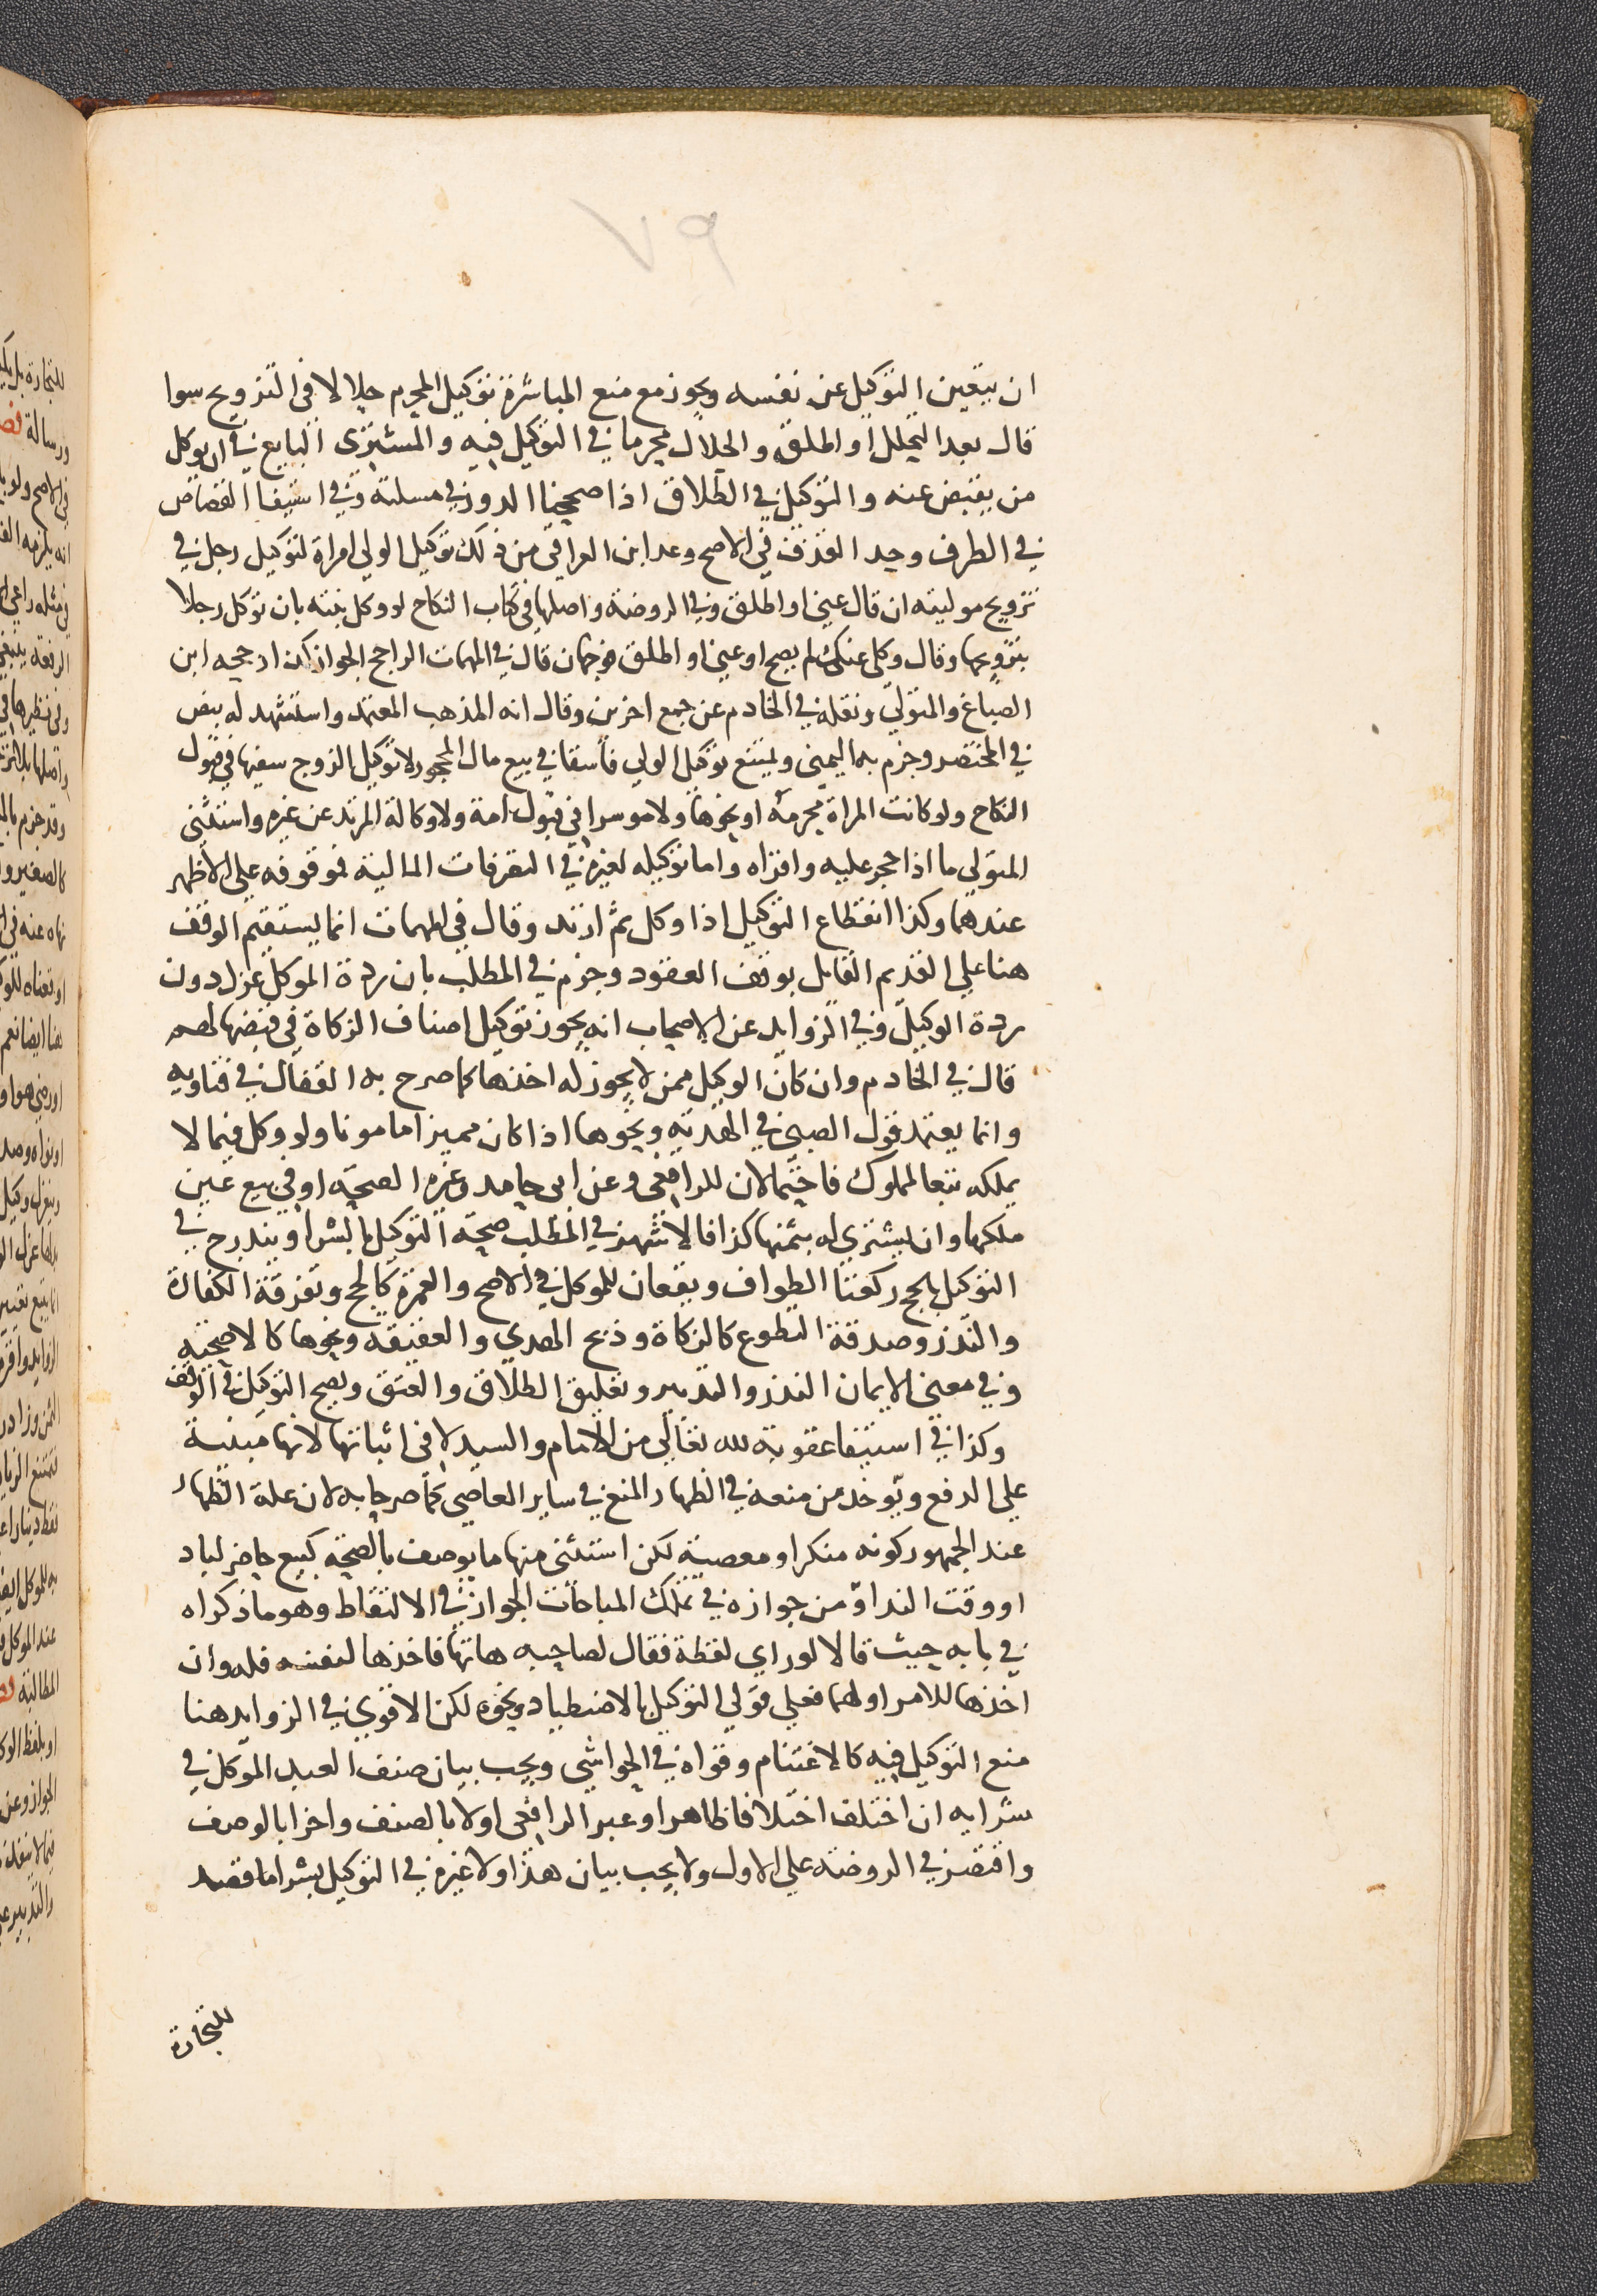 ٧٩
ان يتعين التوكيل عن نفسه ويجوز مع منع المباشرة توكيل المحرم حلالا في التزويج سوا
قال بعد التحلل او اطلق والحلال محرما في التوكيل فيه والمشتري البايع في ان يوكل
من يقبض عنه والتوكيل في الطلاق اذا صححنا الدور في مسلته وفي استيفا القصاص
في الطرف وحد القذف في الاصح وعد ابن العراقي من ذلك توكيل الولي امراة لتوكيل رجل في
تزويج موليته ان قال عني او اطلق وفي الروضة واصلها في كتاب النكاح لو وكل بنته بان توكل رجلا
بتزويجها وقال وكلي عنك لم يصح او عني او اطلق فوجهان قال في المهمات الراجح الجواز كذا رجحه ابن
الصباغ والمتولي ونقله في الخادم عن جمع اخرين وقال انه المذهب المعتمد واستشهد له بنص
في المختصر وجزم به اليمني ويمتنع توكيل الولي فاسقا في بيع مال المحجور لا توكيل الزوج سفيها في قبول
النكاح ولو كانت المراة محرمه او نحوها ولا موسرا في قبول امة ولا وكالة المرتد عن غيره واستثني
المتولي ما اذا حجر عليه واقراه واما توكيله لغيره في التصرفات المالية فموقوفه علي الاظهر
عندهما وكذا انقطاع التوكيل اذا وكل ثم ارتد وقال في المهمات انما يستقيم الوقف
هنا علي القديم القايل بوقف العقود وجزم في المطلب بان ردة الموكل عزل دون
ردة الوكيل وفي الزوايد عن الاصحاب انه يجوز توكيل اصناف الزكاة في قبضها لهم
قال في الخادم وان كان الوكيل ممن لا يجوز له اخذها كما صرح به القفال في فتاويه
وانما يعتمد قول الصبي في الهدية ونحوها اذا كان مميزا مامونا ولو وكل فيما لا
يملكه تبعا لمملوك فاحتمالان للرافعي وعن ابي حامد وغيره الصحة او في بيع عين
ملكها وان يشتري له بثمنها كذا فالاشهر في المطلب صحة التوكيل بالشرا ويندرج في
التوكيل بالحج ركعتا الطواف ويقعان للموكل في الاصح والعمرة كالحج وتفرقة الكفارة
والنذر وصدقة التطوع كالزكاة وذبح الهدي والعقيقه ونحوها كالاضحية
وفي معني الايمان النذر والتدبير وتعليق الطلاق والعتق ويصح التوكيل في الوقف
وكذا في استيفا عقوبة لله تعالي من الامام والسيد لا في اثباتها لانها مبنية
علي الدفع ويوخذ من منعه في الظهار المنع في ساير المعاصي كما صرحا به لان علة الظهار
عند الجمهور كونه منكرا ومعصية لكن استثني منها ما يوصف بالصحة كبيع حاضر لباد
او وقت الندا ومن جوازه في تملك المباحات الجواز في الالتقاط وهو ما ذكراه
في بابه حيث قالا لو راي لقطة فقال لصاحبه هاتها فاخذها لنفسه فله وان
اخذها للامر او لهما فعلي قولي التوكيل بالاصطياد ونحوه لكن الاقوي في الزوايد هنا
منع التوكيل فيه كالاغتنام وقواه في الحواشي ويجب بيان صنف العبد الموكل في
شرايه ان اختلف اختلافا ظاهرا وعبر الرافعي اولا بالصنف واخرا بالوصف
واقتصر في الروضة علي الاول ولا يجب بيان هذا ولا غيره في التوكيل بشرا ما قصد
للتجارة